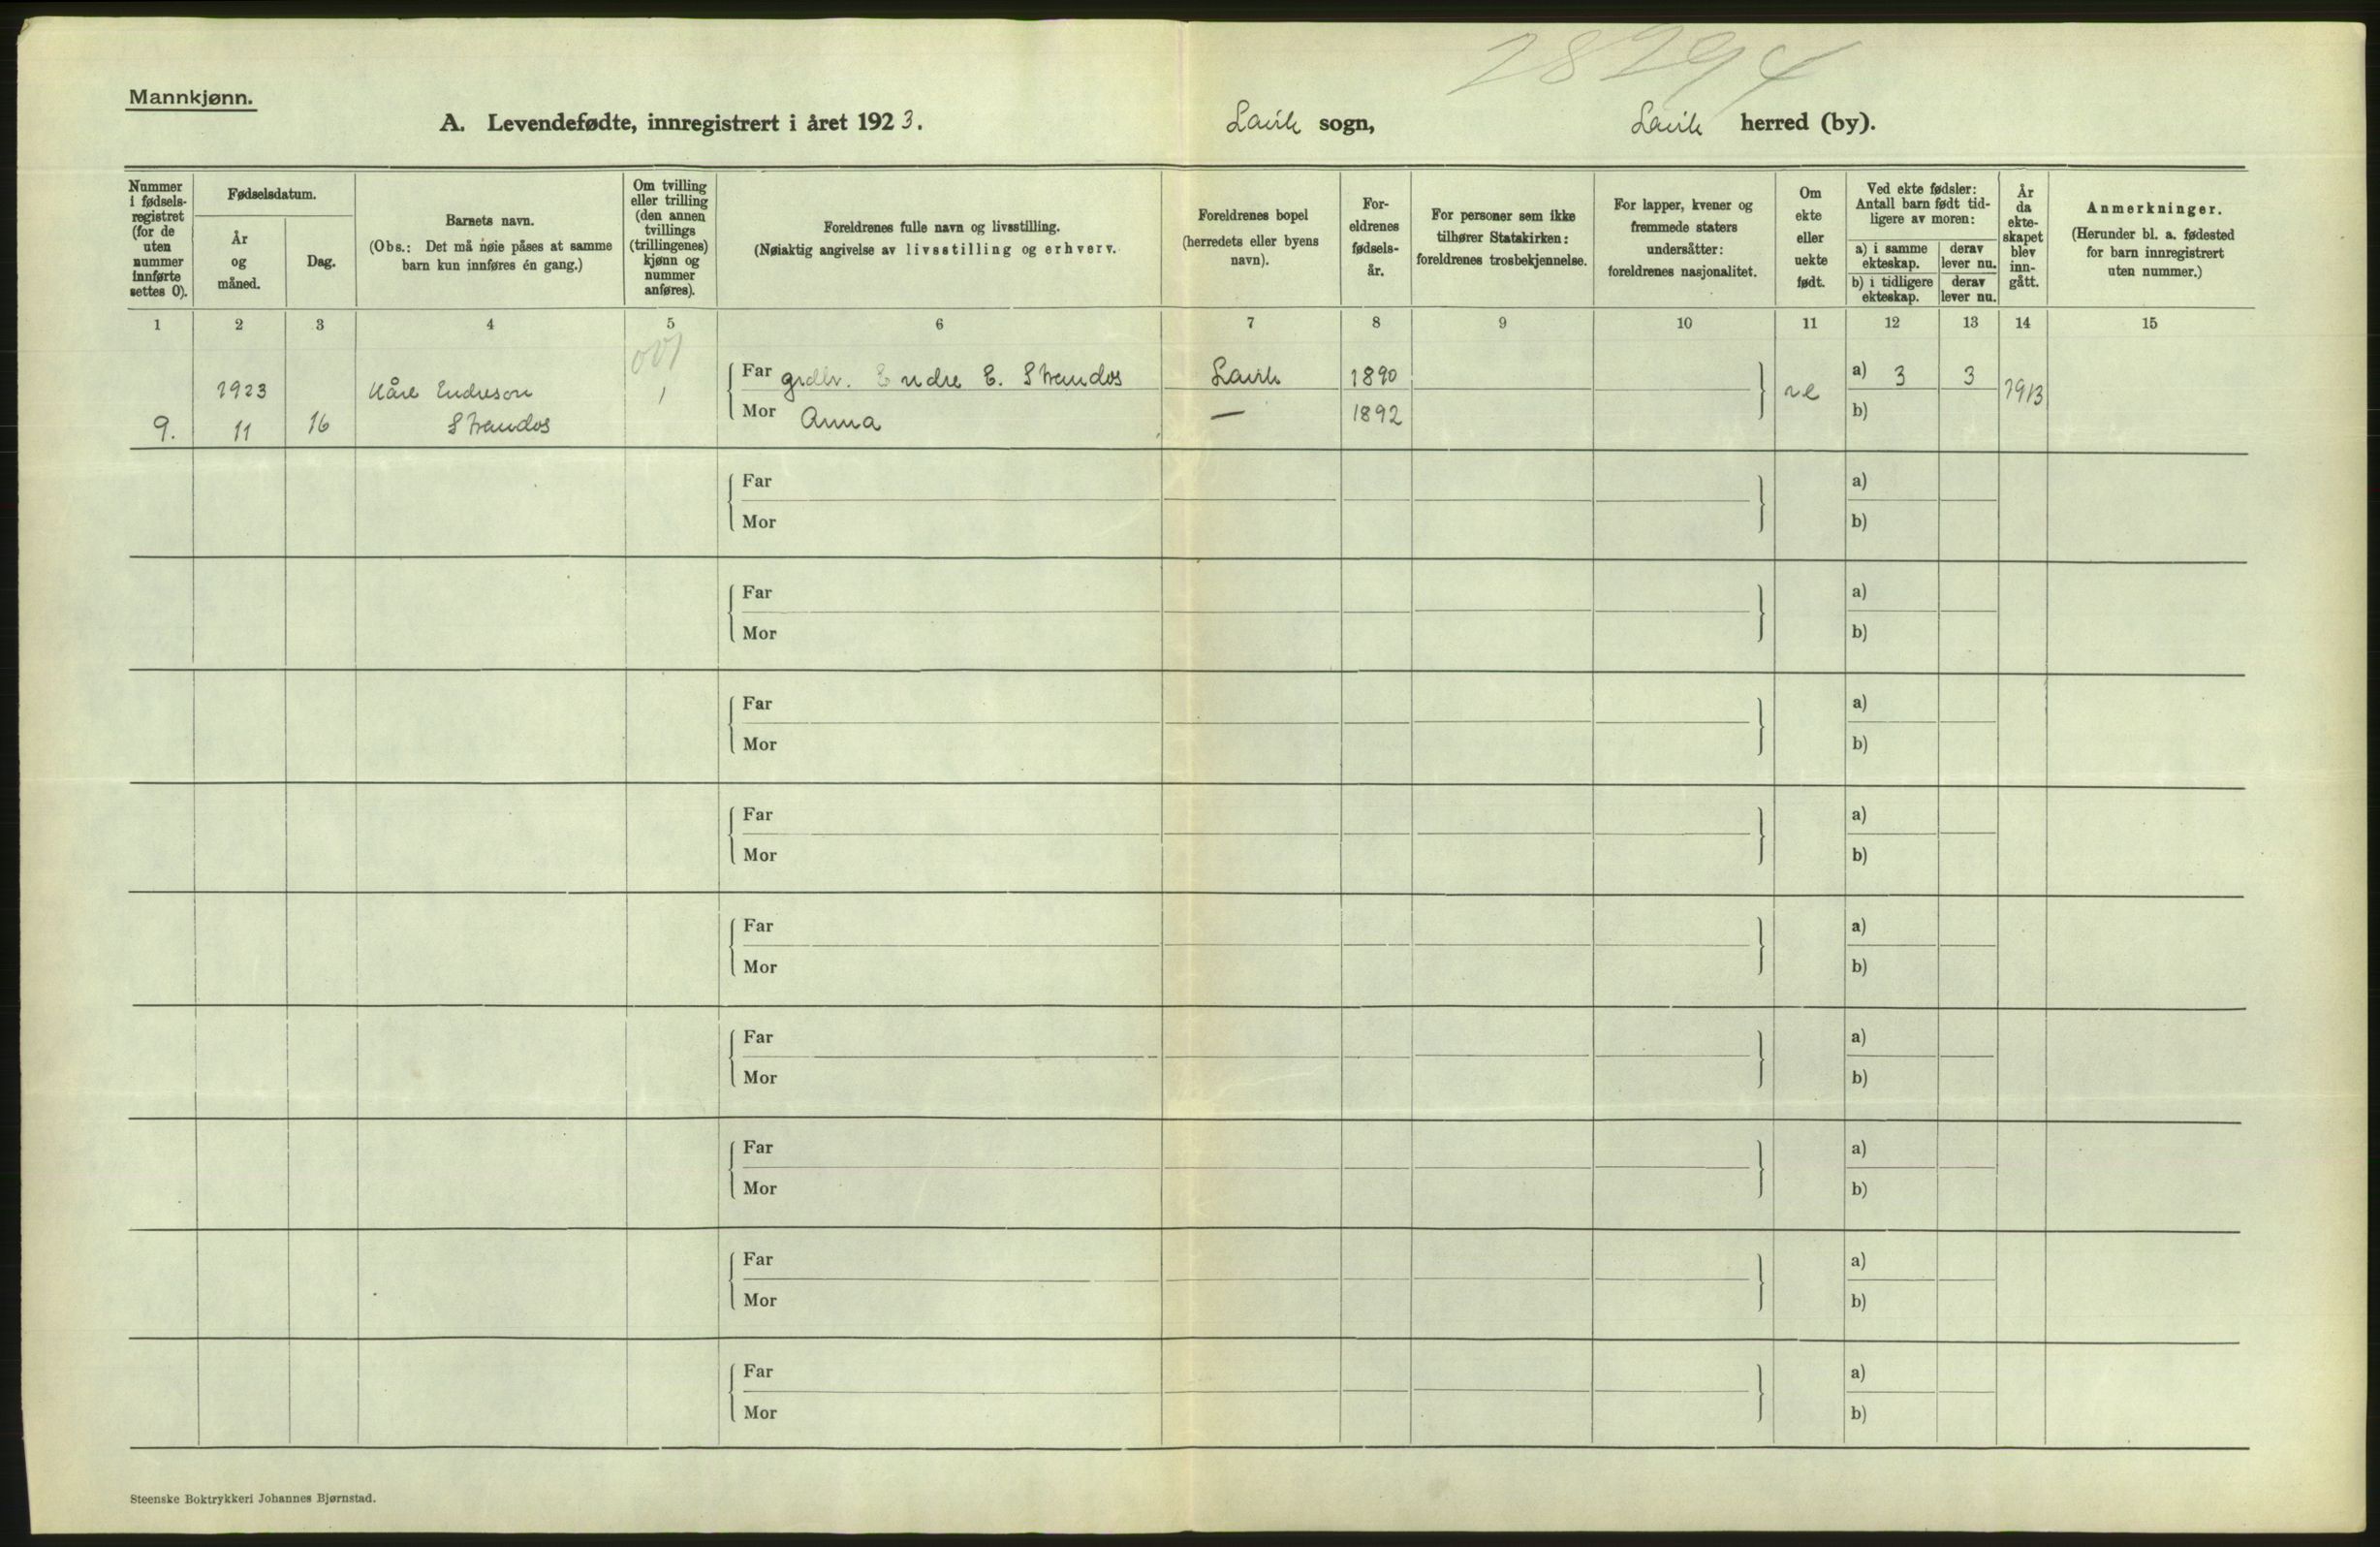 28294
Mannkjønn.
A. Levendefødte, innregistrert i året 1923. Lavik sogn, Lavik herred (by).
Nummer i fødsels-registret (for de uten nummer innførte settes 0).
Fødselsdatum.
År og måned.
Dag.
Barnets navn.
(Obs.: Det må nøie påses at samme barn kun innføres én gang.)
Om tvilling eller trilling (den annen tvillings (trillingenes) kjønn og nummer anføres).
Foreldrenes fulle navn og livsstilling.
(Nøiaktig angivelse av livsstilling og erhverv.
Foreldrenes bopel (herredets eller byens navn).
For-eldrenes fødsels-år.
For personer som ikke tilhører Statskirken: foreldrenes trosbekjennelse.
For lapper, kvener og fremmede staters undersåtter: foreldrenes nasjonalitet.
Om ekte eller uekte født.
Ved ekte fødsler: Antall barn født tid-ligere av moren:
a) i samme ekteskap.
derav lever nu.
b) i tidligere ekteskap.
derav lever nu.
År da ekte-skapet blev inn-gått.
Anmerkninger.
(Herunder bl. a. fødested for barn innregistrert uten nummer.)
1 2 3 4 5 6 7 8 9 10 11 12 13 14 15
001
1923 Kåre Endreson 1 Far grdbr. Endre E. Strandos Lavik 1890 a) 3 3 1913
9. 11 16 Strandos Mor Anna — 1892 b)
Far a)
Mor b)
Far a)
Mor b)
Far a)
Mor b)
Far a)
Mor b)
Far a)
Mor b)
Far a)
Mor b)
Far a)
Mor b)
Far a)
Mor b)
Far a)
Mor b)
Steenske Boktrykkeri Johannes Bjørnstad.